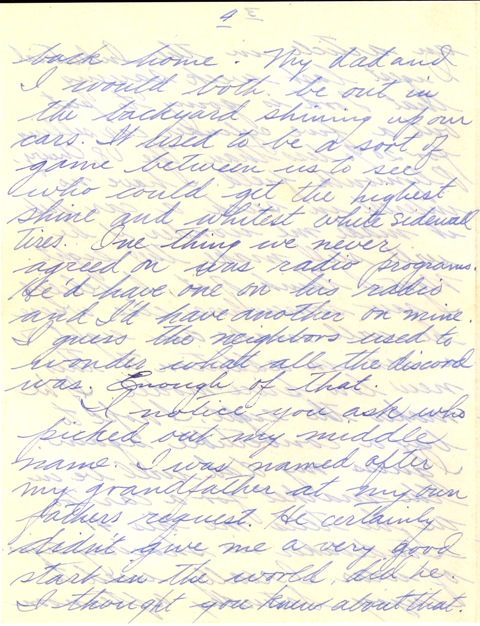 4
back home. My dad and
I would both be out in
the backyard shining up our
cars. It used to be a sort of
game between us to see
who could get the highest
shine and whitest white sidewall
tires. One thing we never
agreed on was radio programs.
He'd have one on his radio
and I'd have another on mine.
I guess the neighbors used to
wonder what all the discord
was. Enough of that.
I notice you ask who
picked out my middle
name. I was named after
my grandfather at my own
fathers request. He certainly
didn't give me a very good
start in the world, did he.
I thought you knew about that.